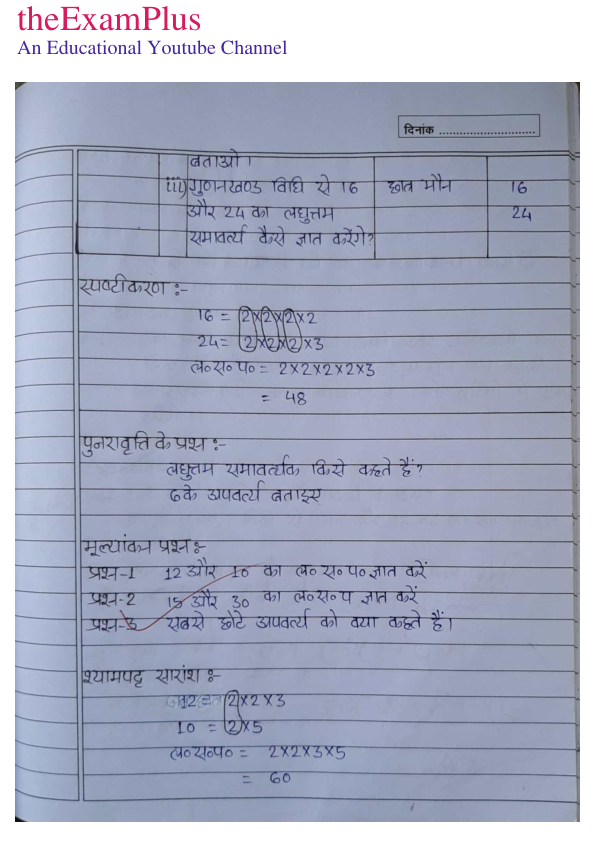 theExamPlus
An Educational Youtube Channel
दिनांक ............................
बताओ।
iii) गुणनखण्ड विधि से 16 छात्र मौन 16
और 24 का लघुत्तम 24
समावर्त्य कैसे ज्ञात करेंगे?
स्पष्टीकरण :-
16 = 2×2×2×2
24= 2×2×2×3
ल०स०प० = 2×2×2×2×3
= 48
पुनरावृत्ति के प्रश्न :-
लघुत्तम समावर्त्यक किसे कहते हैं?
6 के अपवर्त्य बताइए
मूल्यांकन प्रश्न :-
प्रश्न-1 12 और 10 का ल० स० प० ज्ञात करें
प्रश्न-2 15 और 30 का ल० स० प ज्ञात करें
प्रश्न-3 सबसे छोटे अपवर्त्य को क्या कहते हैं।
श्यामपट्ट सारांश :-
12 = 2×2×3
10 = 2×5
ल०स०प० = 2×2×3×5
= 60